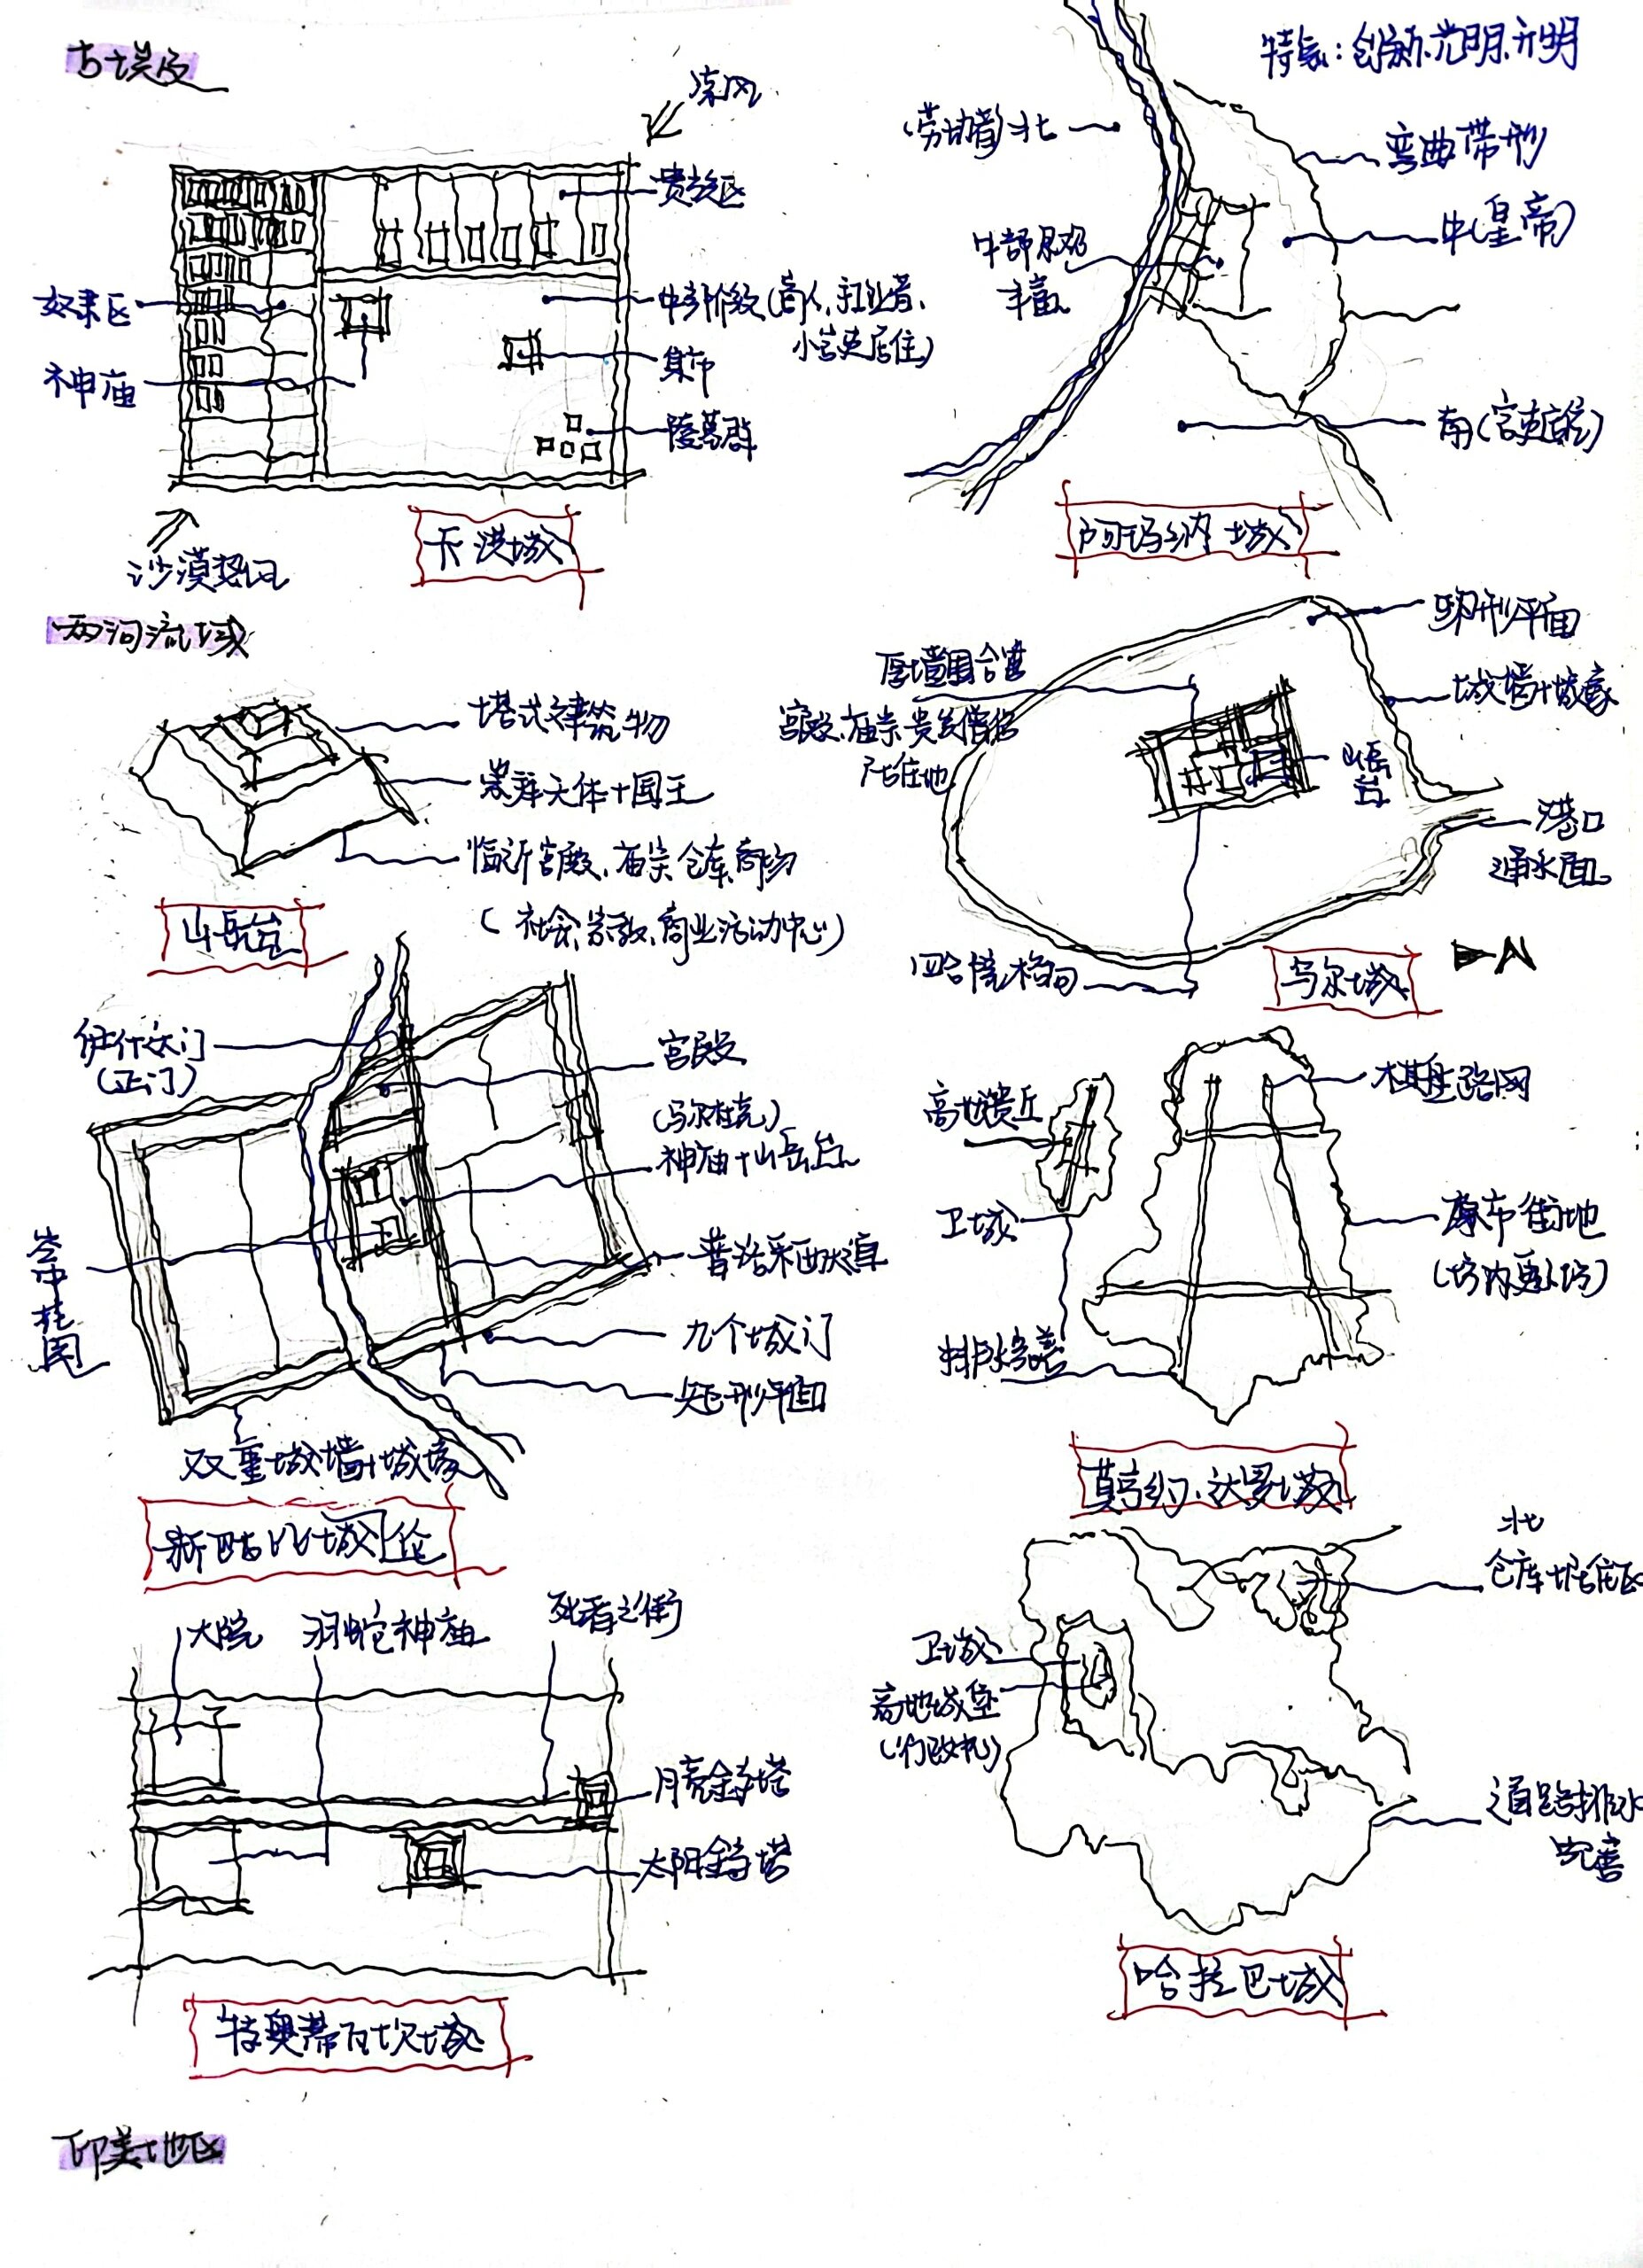 古埃及
凉风
贵族区
中产阶级(商人、手工业者、
小官吏居住)
集市
陵墓群
奴隶区
神庙
沙漠热风
卡洪城
特象:创新、光明、开明
(劳动者)北
弯曲带形
中(皇帝)
中部
丰富
南(官吏居住)
阿玛纳城
两河流域
塔式建筑物
崇拜天体+国王
临近宫殿、庙宗仓库商场
(社会、宗教、商业活动中心)
山岳台
厚墙围合着
宫殿、庙宗、贵族僧侣
居住地
卵形平面
城墙+城壕
山岳
台
港口
通水面
四合院格局
乌尔城
N
伊什达门
(正门)
宫殿
(马尔杜克)
神庙+山岳台
普洛采西大道
九个城门
矩形平面
空中花园
双重城墙+城壕
新巴比伦城
高地
卫城
排水完善
棋盘路网
街地
(坊内更小坊)
莫亨约·达罗城
大院
羽蛇神庙
死者之街
月亮金字塔
太阳金字塔
特奥蒂瓦坎城
北
仓库+居住区
卫城
高地城堡
(行政机)
道路排水
完善
哈拉巴城
印美地区